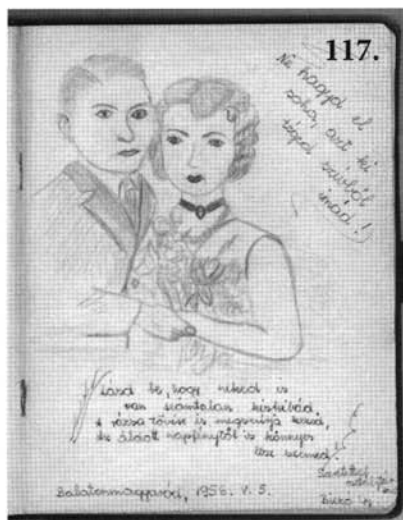 117.
Ne hagyd el
soha, azt, ki
téged szívből
imád!
Lásd be, hogy neked is
van számtalan kis hibád,
A rózsa tövise is megszúrja kezed,
és áldott napfénytől is könnyes
lesz szemed!
Balatonmagyaród, 1956. V. 5.